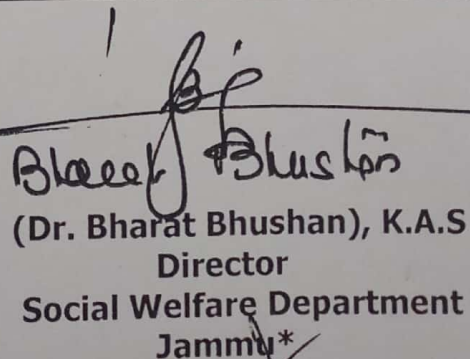 Bharat Bhushan
(Dr. Bharat Bhushan), K.A.S
Director
Social Welfare Department
Jammu*